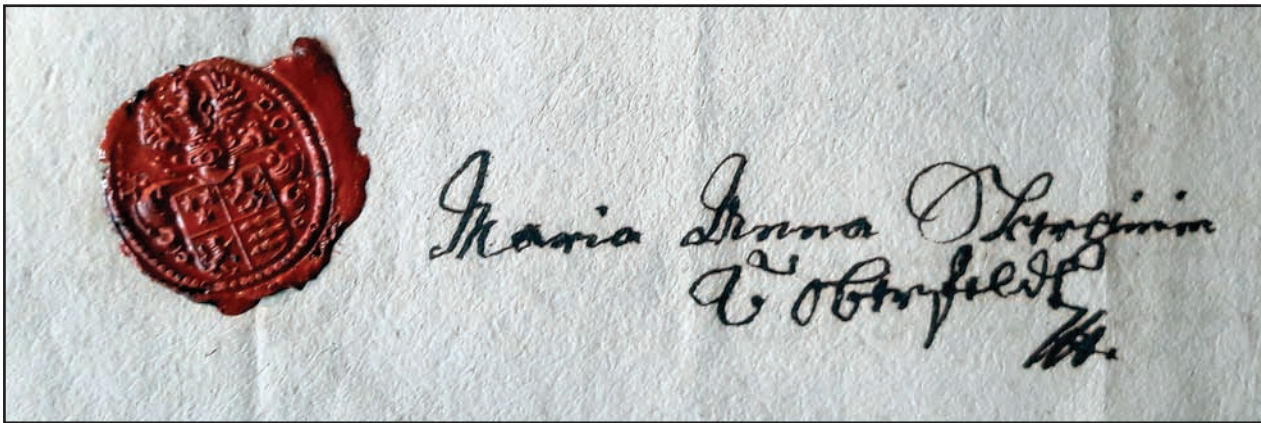 Maria Anna Skerpinin
V Oberfeldt